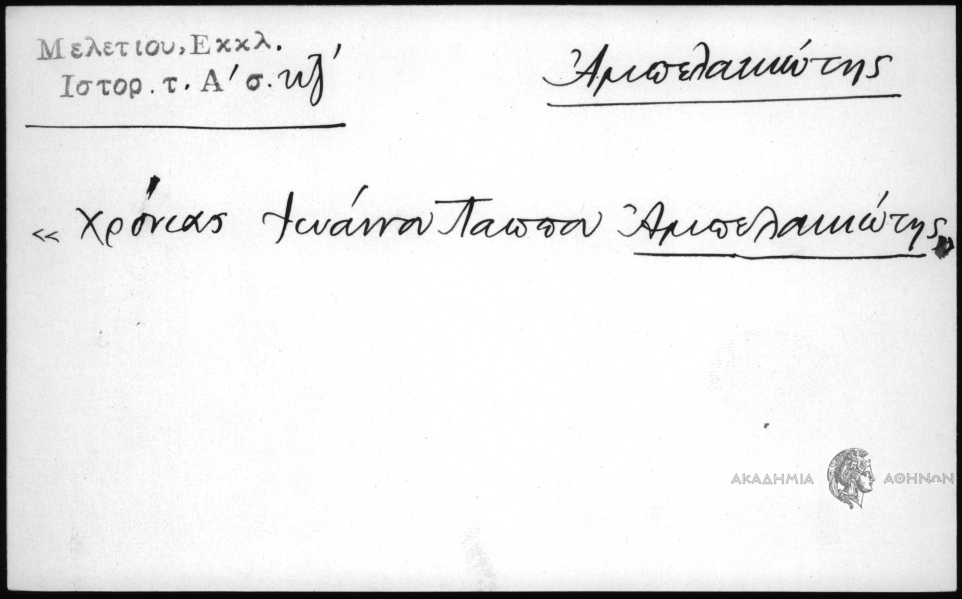 Μελετιου, Εκκλ.
Ιστορ. τ. Α' σ. κζ'
Ἀμπελακιώτης
« Χρόνιας Ἰωάννου Παππα Ἀμπελακιώτης»
ΑΚΑΔΗΜΙΑ ΑΘΗΝΩΝ